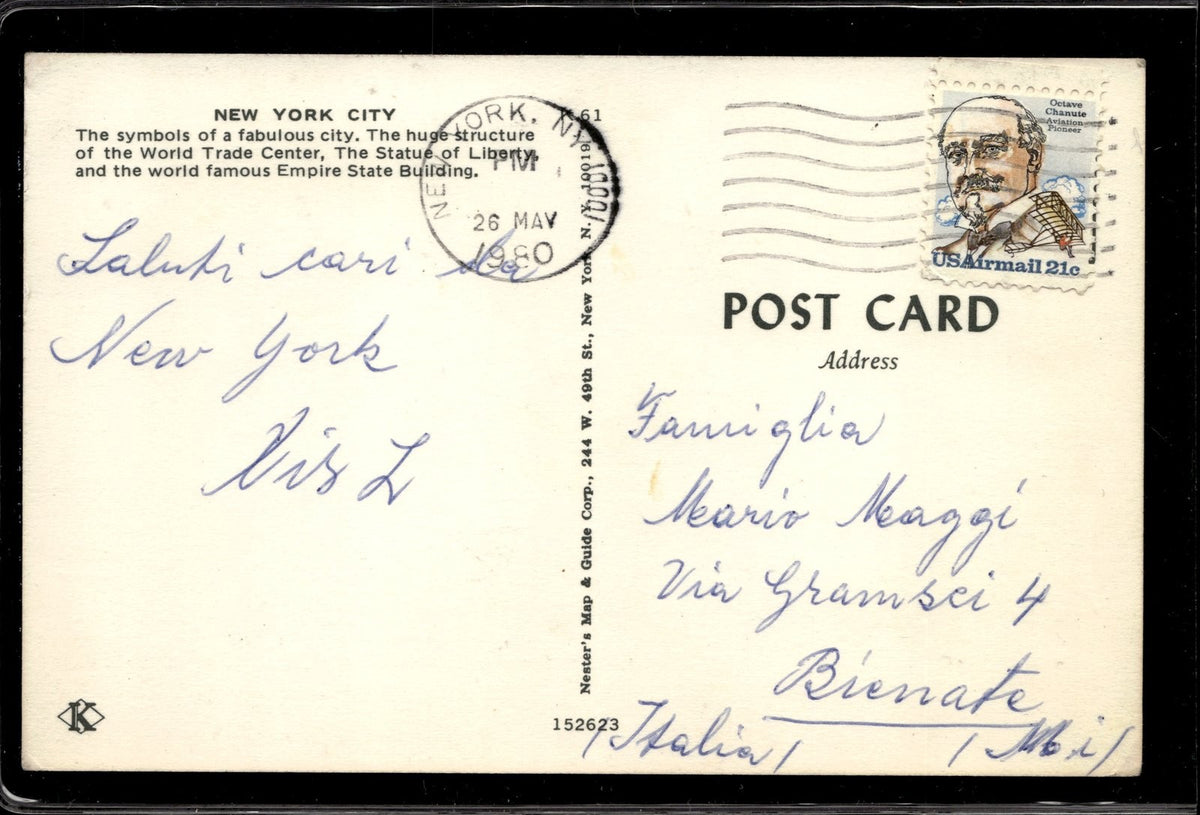 NEW YORK CITY
The symbols of a fabulous city. The huge structure
of the World Trade Center, The Statue of Liberty,
and the world famous Empire State Building.
NEW YORK, NY
PM
26 MAY
1980
61
Octave
Chanute
Aviation
Pioneer
USAirmail 21c
Saluti cari da
New York
POST CARD
Address
Famiglia
Mario Maggi
Via Gramsci 4
Bienate
(Italia) (Mi)
Nester's Map & Guide Corp., 244 W. 49th St., New York N.Y. 10019
K
152623